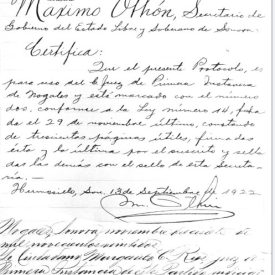 Máximo Othón, Secretario de
Gobierno del Estado Libre y Soberano de Sonora.
Certifica:
Que el presente Protocolo, es
para uso del Juez de Primera Instancia
de Nogales y está marcado con el número
dos, conforme a la Ley número 14, fecha
da el 29 de noviembre último, constando
de trescientas páginas útiles, firmadas
ésta y la última por el suscrito y sella
das las demás con el sello de esta Secreta
ría.—
Hermosillo, Son., 13 de Septiembre de 1922.
Nogales, Sonora, noviembre
mil novecientos veintidos
El Ciudadano Margarito C. Ríos, Juez de
Primera Instancia de